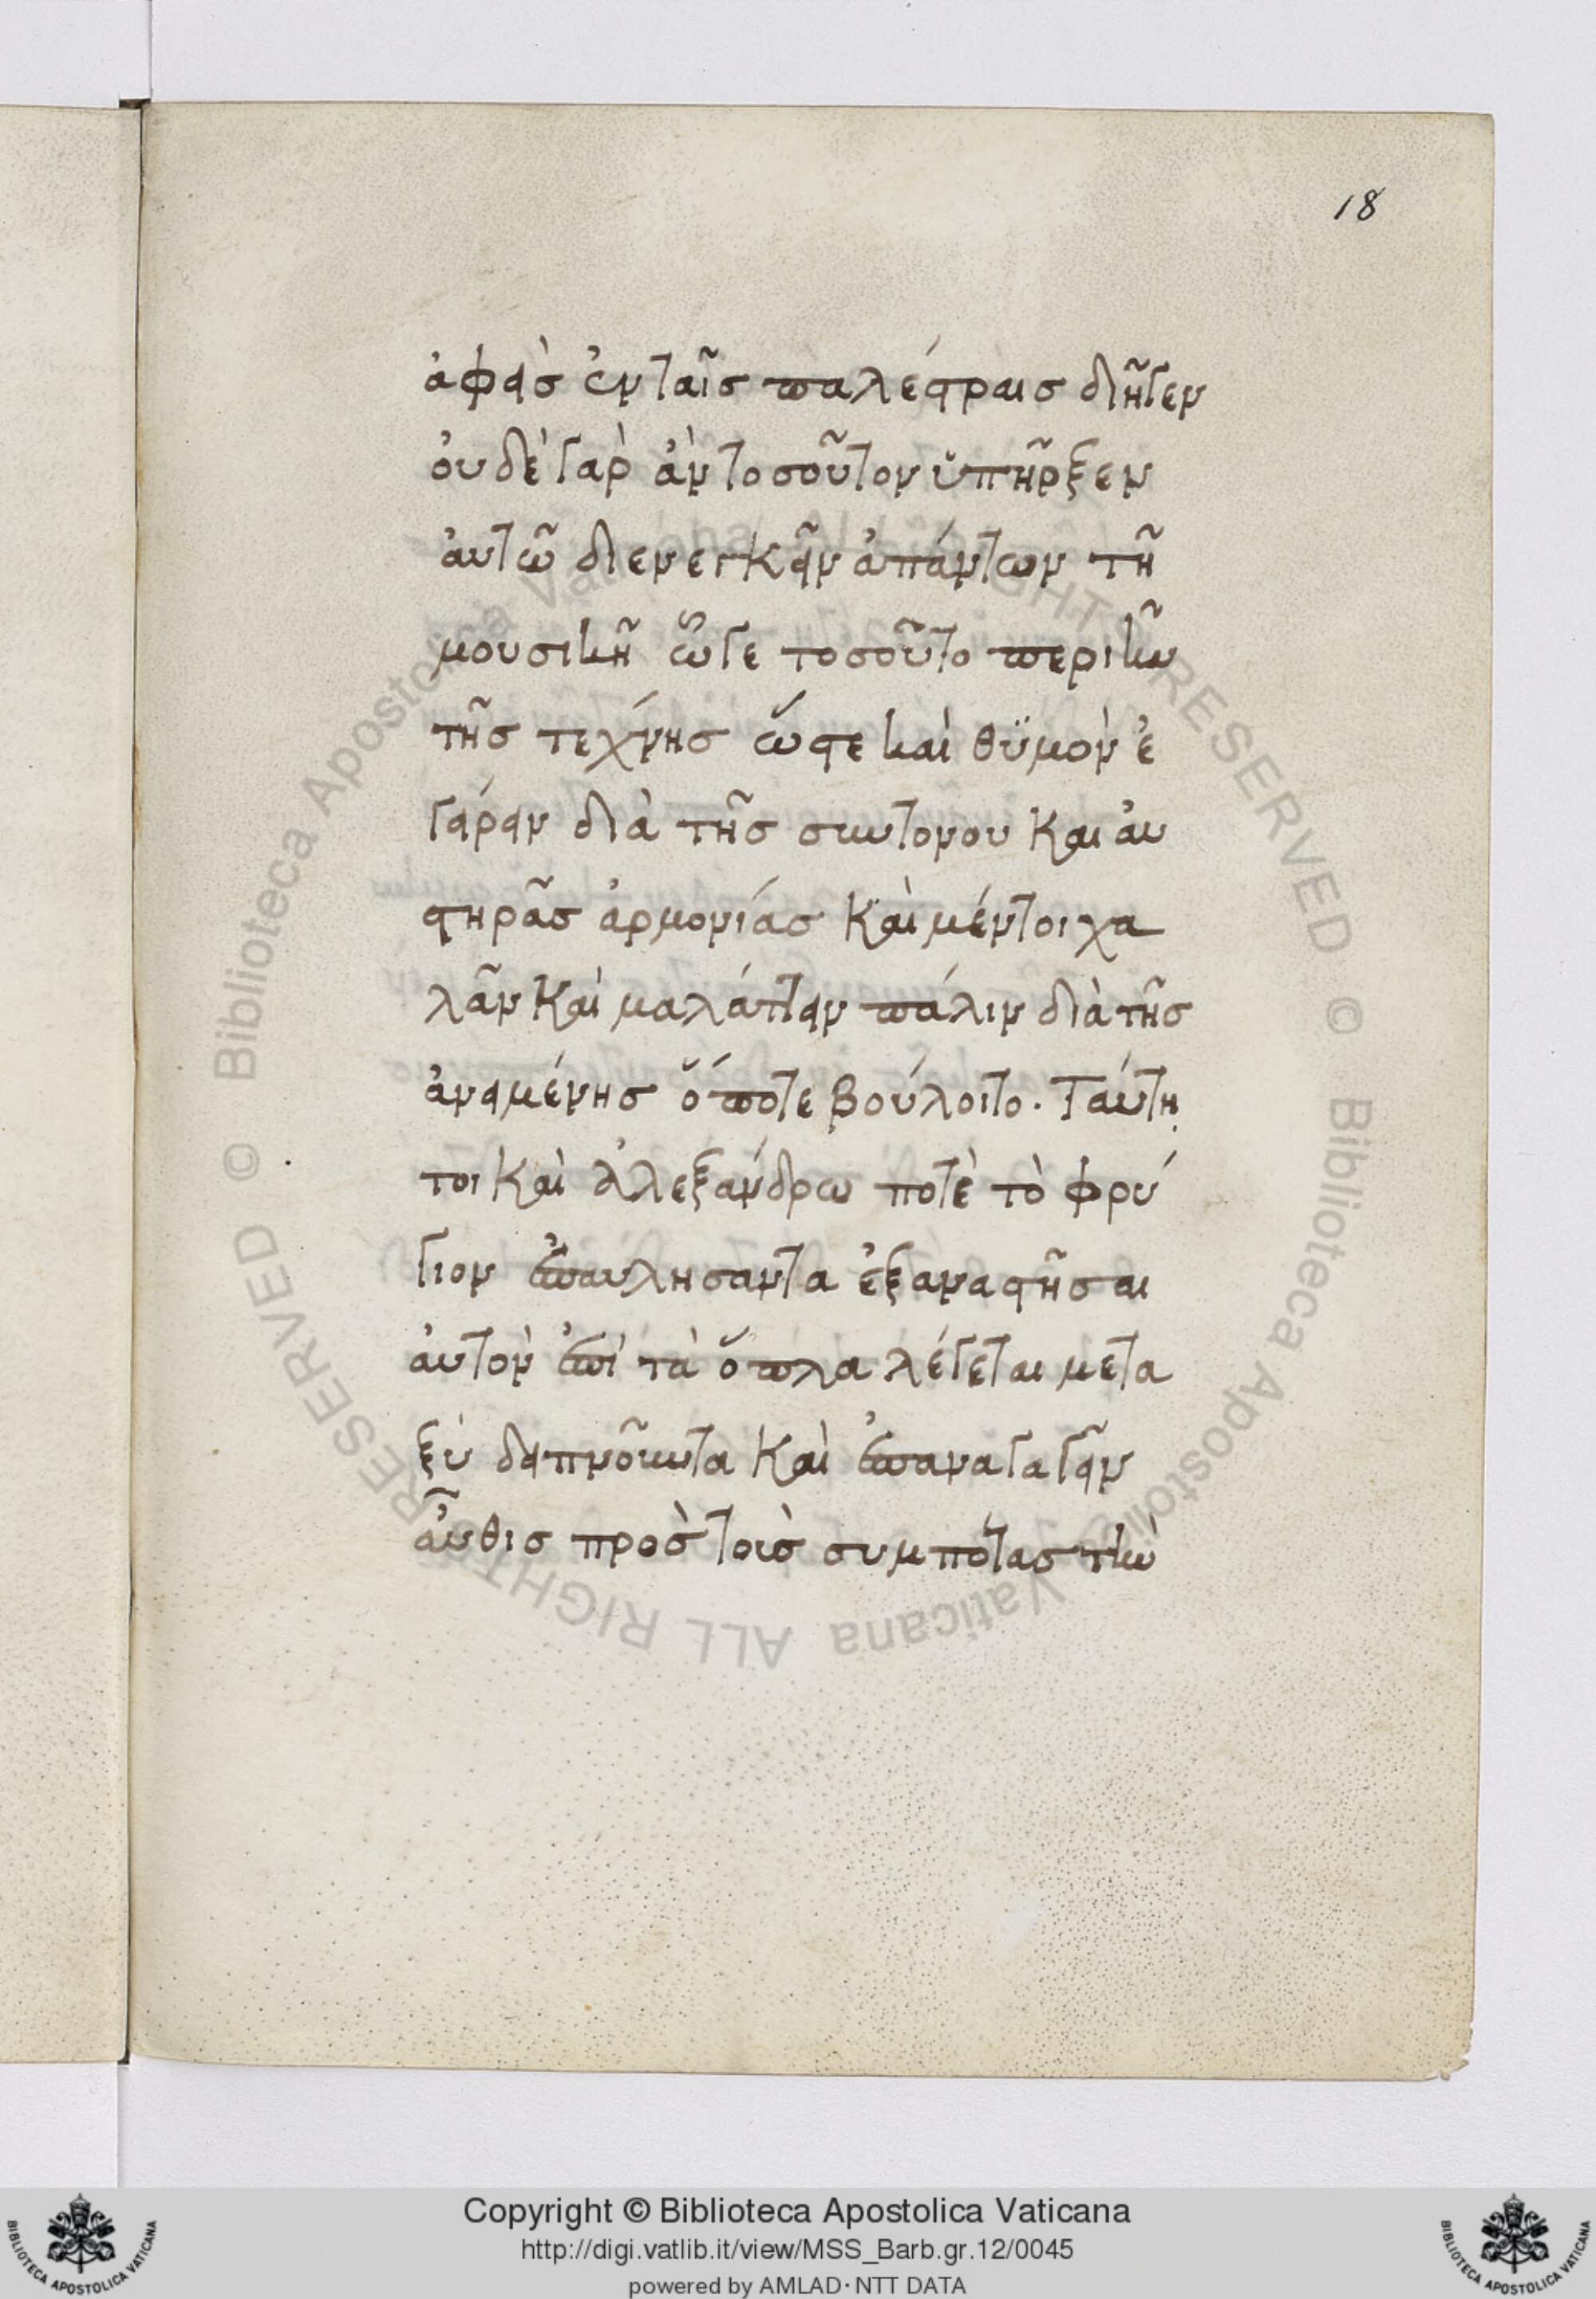 18
ἀφὰσ ἐν ταῖσ παλαίστραισ διῆγεν
ὀυδὲ γὰρ ἀν τοσοῦτον ὑπῆρξεν
ἀυτῶ διενεγκεῖν ἁπάντων τῆ
μουσικῆ ὥς γε τοσοῦτο περιῆν
τῆσ τέχνησ ὥστε καὶ θϋμὸν ἐ
γείρειν διὰ τῆσ συντονου Και ἀυ
στηρᾶσ ἁρμονίασ Καὶ μέντοι χα
λᾶν Καὶ μαλάττειν πάλιν διὰ τῆσ
ἀνειμένησ ὁπότε βούλοιτο. Ταύτη
τοι Καὶ Ἀλεξάνδρω ποτὲ τὸ φρύ
γιον ἐπαυλησαντα ἐξαναστῆσαι
ἀυτὸν ἐπὶ τὰ ὅπλα λέγεται μετα
ξὺ δειπνοῦντα Καὶ ἐπαναγαγεῖν
ἆυθισ πρὸσ τοὺσ συμπότασ τὴν
Copyright © Biblioteca Apostolica Vaticana
http://digi.vatlib.it/view/MSS_Barb.gr.12/0045
powered by AMLAD·NTT DATA